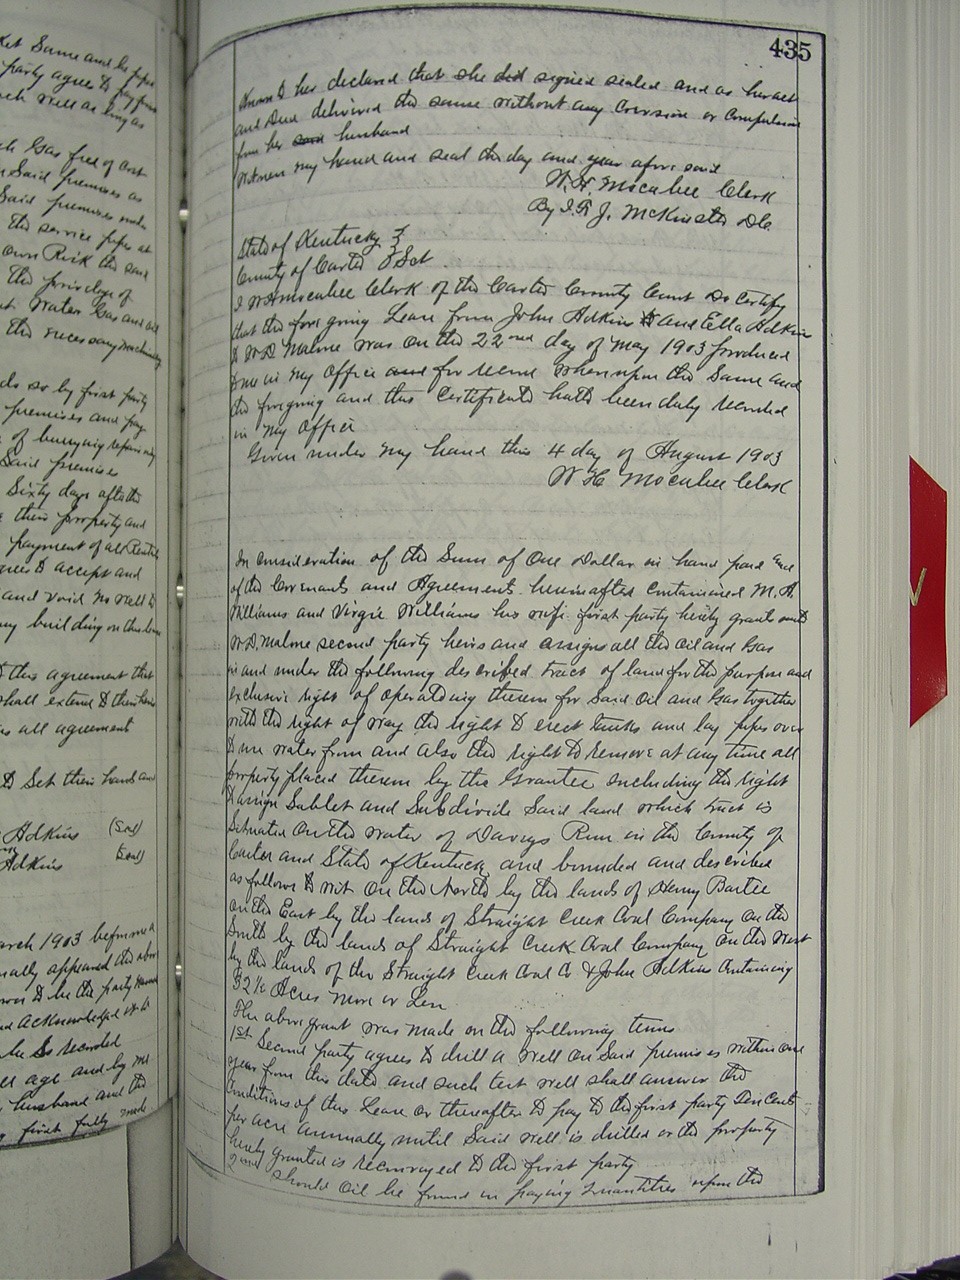 ket Same and he pipe
party agree to pay from
each well as long as
Gas free of cost
Said premises as
Said premises under
the service pipes at
own Risk the said
the privilege of
Water Gas and oil
the necessary machinery
do so by first party
premises and pay
of burrying repairing
Said premises
Sixty days after the
their property and
payment of all Rentals
agrees to accept and
and void no well to
any building on the
this agreement that
shall extend to their heirs
as all agreement
Set their hands and
Adkins (Seal)
Adkins (Seal)
March 1903 before me
personally appeared the above
to be the party
and acknowledged it to
be so recorded
age and by me
husband and the
first fully made
435
Known to her declared that she did signed sealed and as her act
and Deed delivered the same without any Coersion or Compulsion
from her said husband
Witness my hand and seal the day and year afore said
W. H. Mocabee Clerk
By J. McKinster DC
State of Kentucky
County of Carter Sct
I W H Mocabee Clerk of the Carter County Court Do Certify
that the foregoing Lease from John Adkins and Ella Adkins
to W D Malone was on the 22nd day of May 1903 produced
to me in my Office and for record whereupon the Same and
the foregoing and this Certificate hath been duly recorded
in my Office
Given under my hand this 4 day of August 1903
W H Mocabee Clerk
In consideration of the Sum of One Dollar in hand paid and
of the Covenants and Agreements hereinafter Contained M. A.
Williams and Virgie Williams his wife first party hereby grants unto
W. D. Malone second party heirs and assigns all the oil and Gas
in and under the following described tract of land for the purpose and
exclusive right of operateing thereon for Said Oil and Gas together
with the right of way the right to erect tanks and lay pipes over
to use water from and also the right to remove at any time all
property placed thereon by the Grantee including the right
to assign Sublet and Subdivide Said land which tract is
Situated On the water of Davys Run in the County of
Carter and State of Kentucky and bounded and described
as follows to wit On the North by the lands of Henry Bartee
on the East by the lands of Straight Creek Coal Company On the
South by the lands of Straight Creek Coal Company On the West
by the lands of the Straight Creek Coal Co & John Adkins Containing
32½ Acres more or Less
The above grant was made on the following terms
1st Second party agrees to drill a well on Said premises within one
year from this date and such test well shall answer the
Conditions of this Lease or thereafter to pay to the first party Ten Cents
per acre annually until Said well is drilled or the property
hereby granted is reconvayed to the first party
2nd Should Oil be found in paying quantities upon the